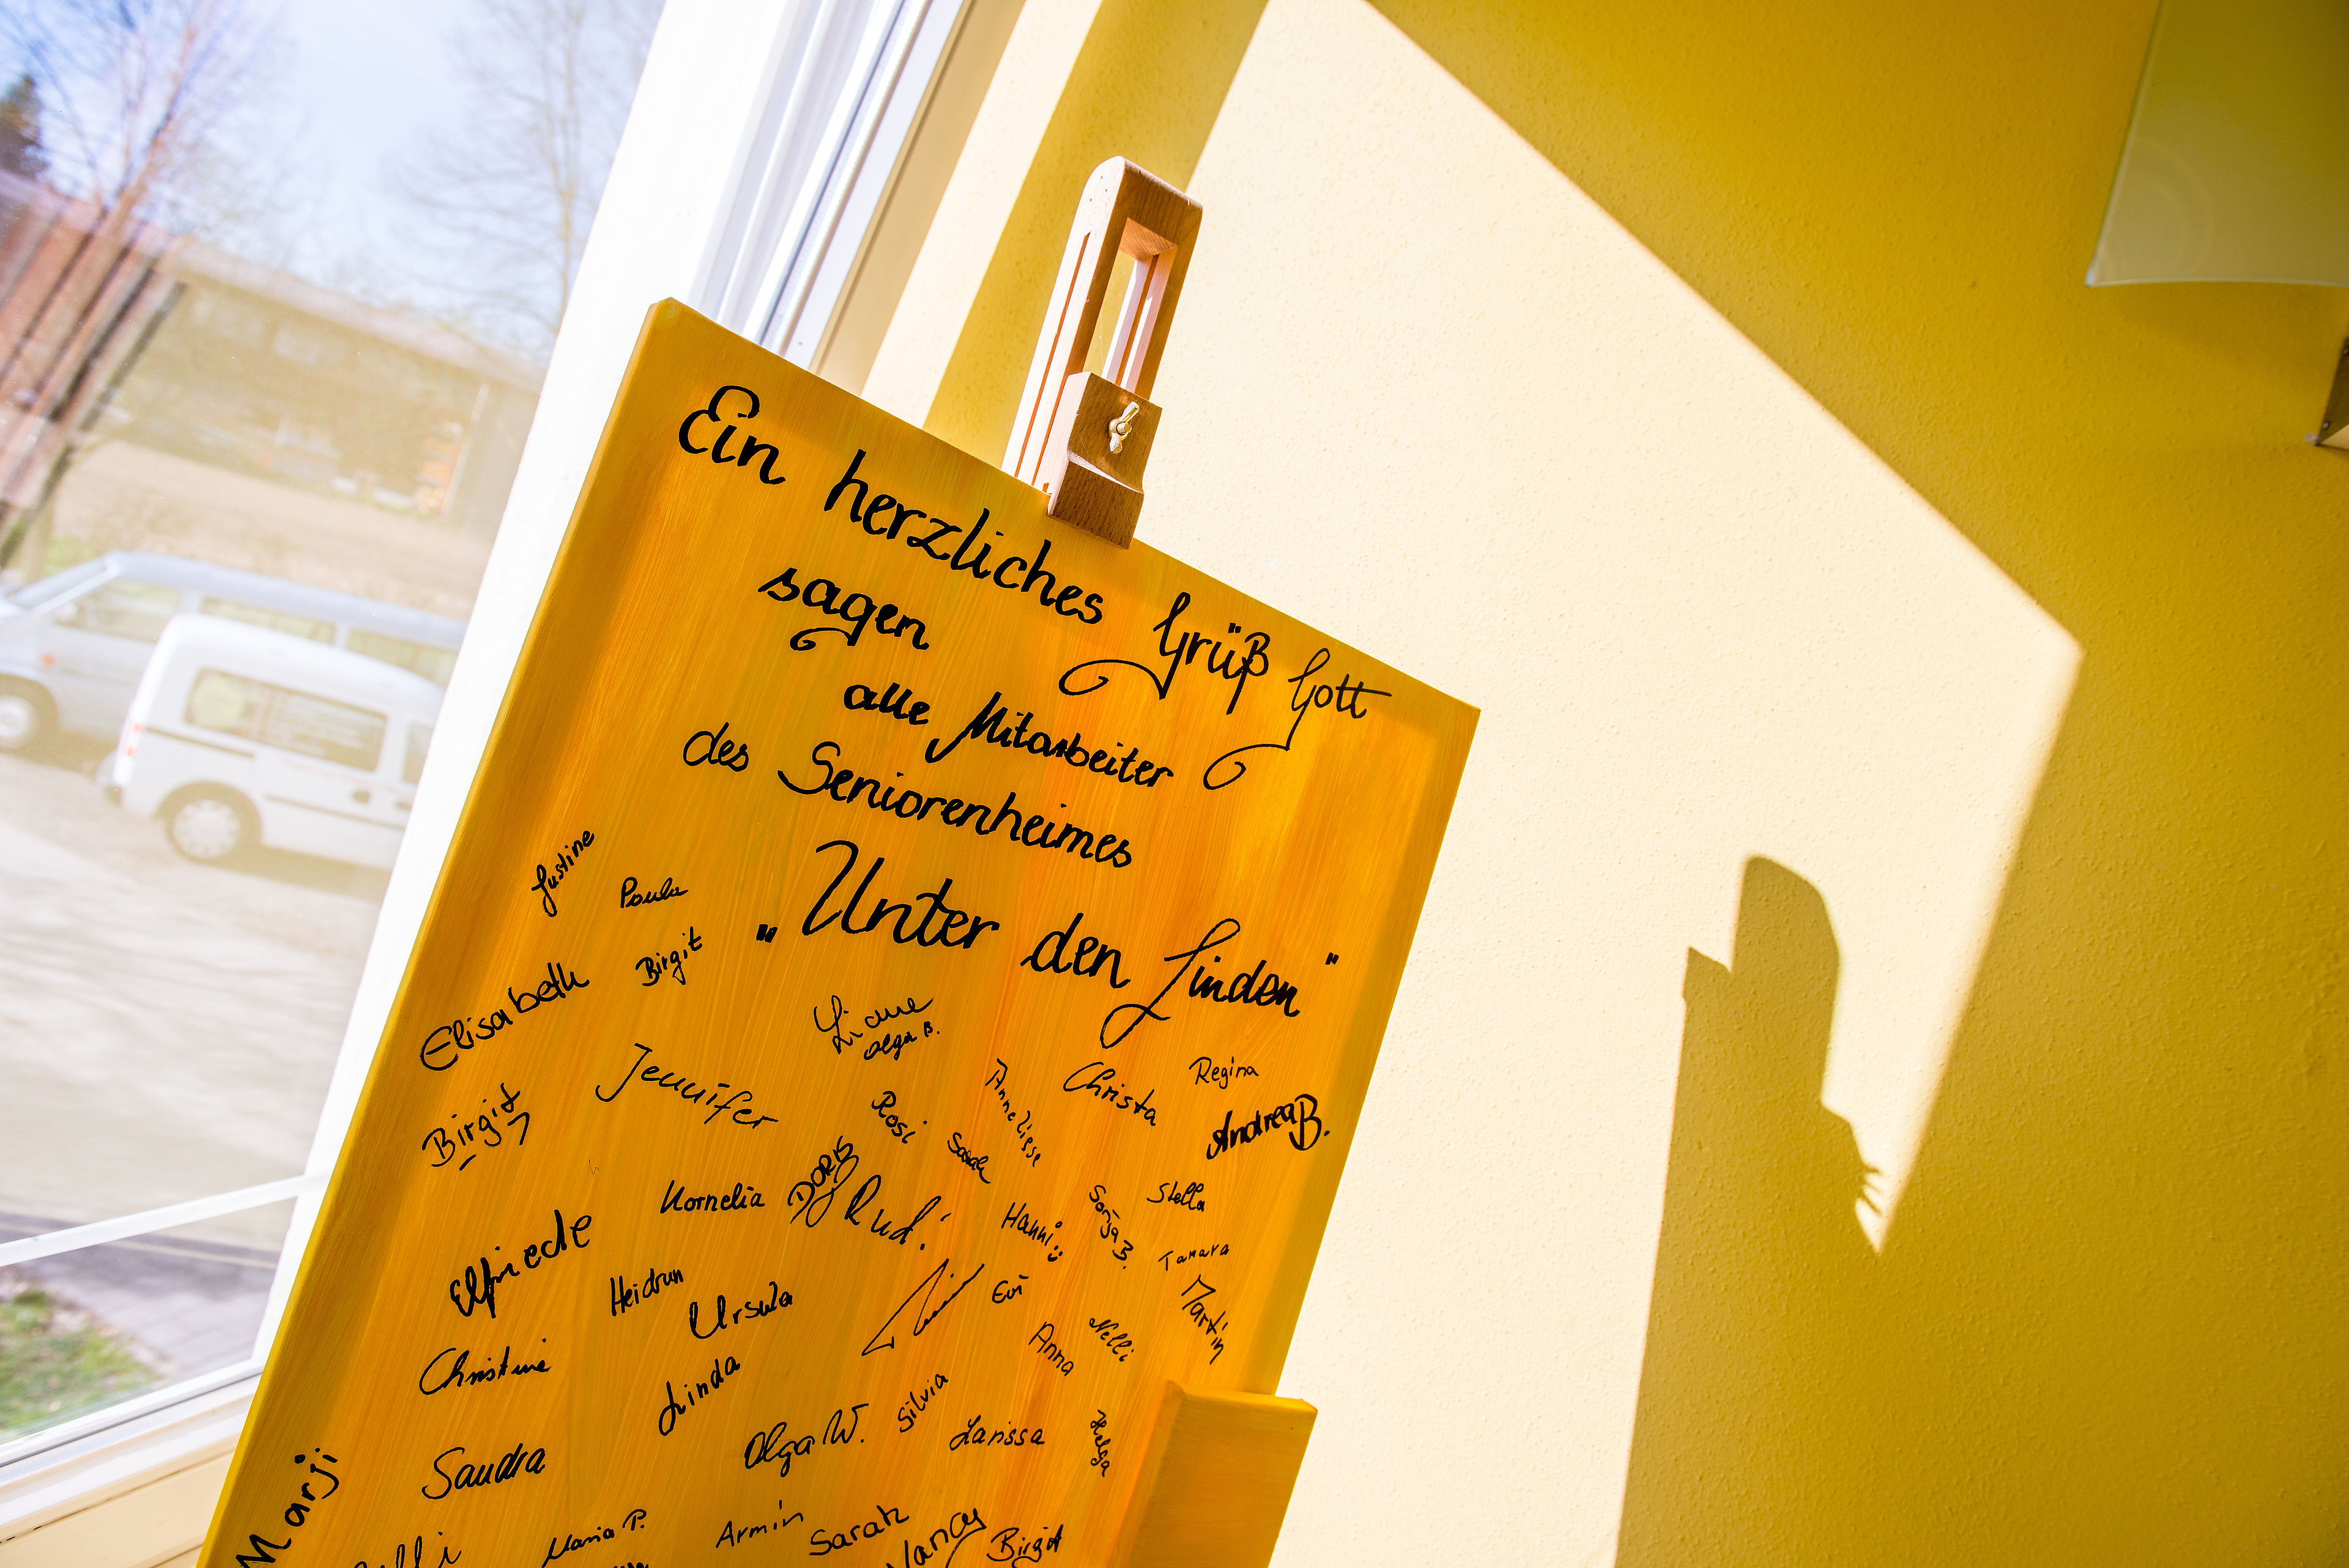 Ein herzliches Grüß Gott
sagen
alle Mitarbeiter
des Seniorenheimes
„Unter den Linden"
Justine
Paula
Elisabeth
Birgit
Liane
Olga B.
Jennifer
Birgit
Rosi
Anneliese
Christa
Regina
Andrea B.
Sarah
Kornelia
DORIS
Rudi
Hanni
Sonja B.
Stella
Tamara
Elfriede
Heidrun
Ursula
Evi
Martin
Christine
Linda
Anna
Nelli
Silvia
Sandra
Olga W.
Larissa
Helga
Marji
Maria P.
Armin
Sarah
Nancy
Birgit